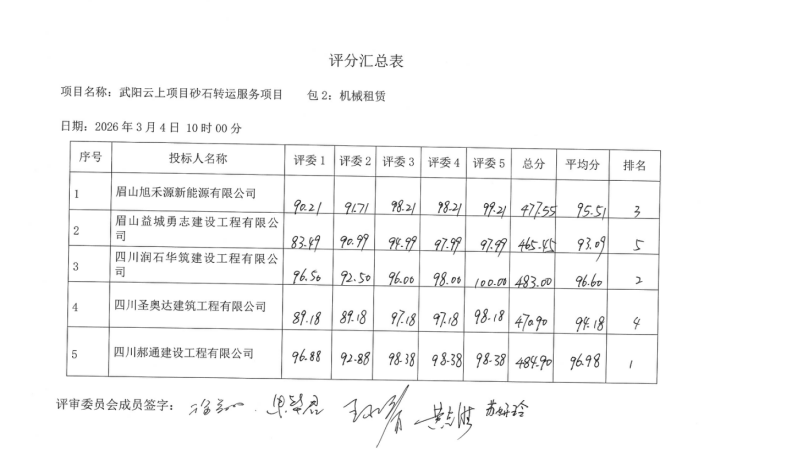 评分汇总表
项目名称：武阳云上项目砂石转运服务项目 包 2：机械租赁
日期：2026 年 3 月 4 日 10 时 00 分
序号 投标人名称 评委 1 评委 2 评委 3 评委 4 评委 5 总分 平均分 排名
1 眉山旭禾源新能源有限公司 90.21 91.71 98.21 98.21 99.21 477.55 95.51 3
2 眉山益城勇志建设工程有限公
司 83.49 90.99 94.99 97.99 97.99 465.45 93.09 5
3 四川润石华筑建设工程有限公
司 96.50 92.50 96.00 98.00 100.00 483.00 96.60 2
4 四川圣奥达建筑工程有限公司 89.18 89.18 97.18 97.18 98.18 470.90 94.18 4
5 四川郝通建设工程有限公司 96.88 92.88 98.38 98.38 98.38 484.90 96.98 1
评审委员会成员签字：